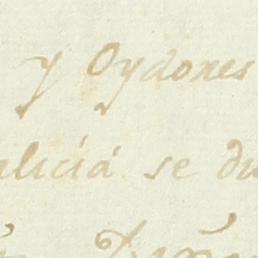 y Oydones
alicia se du